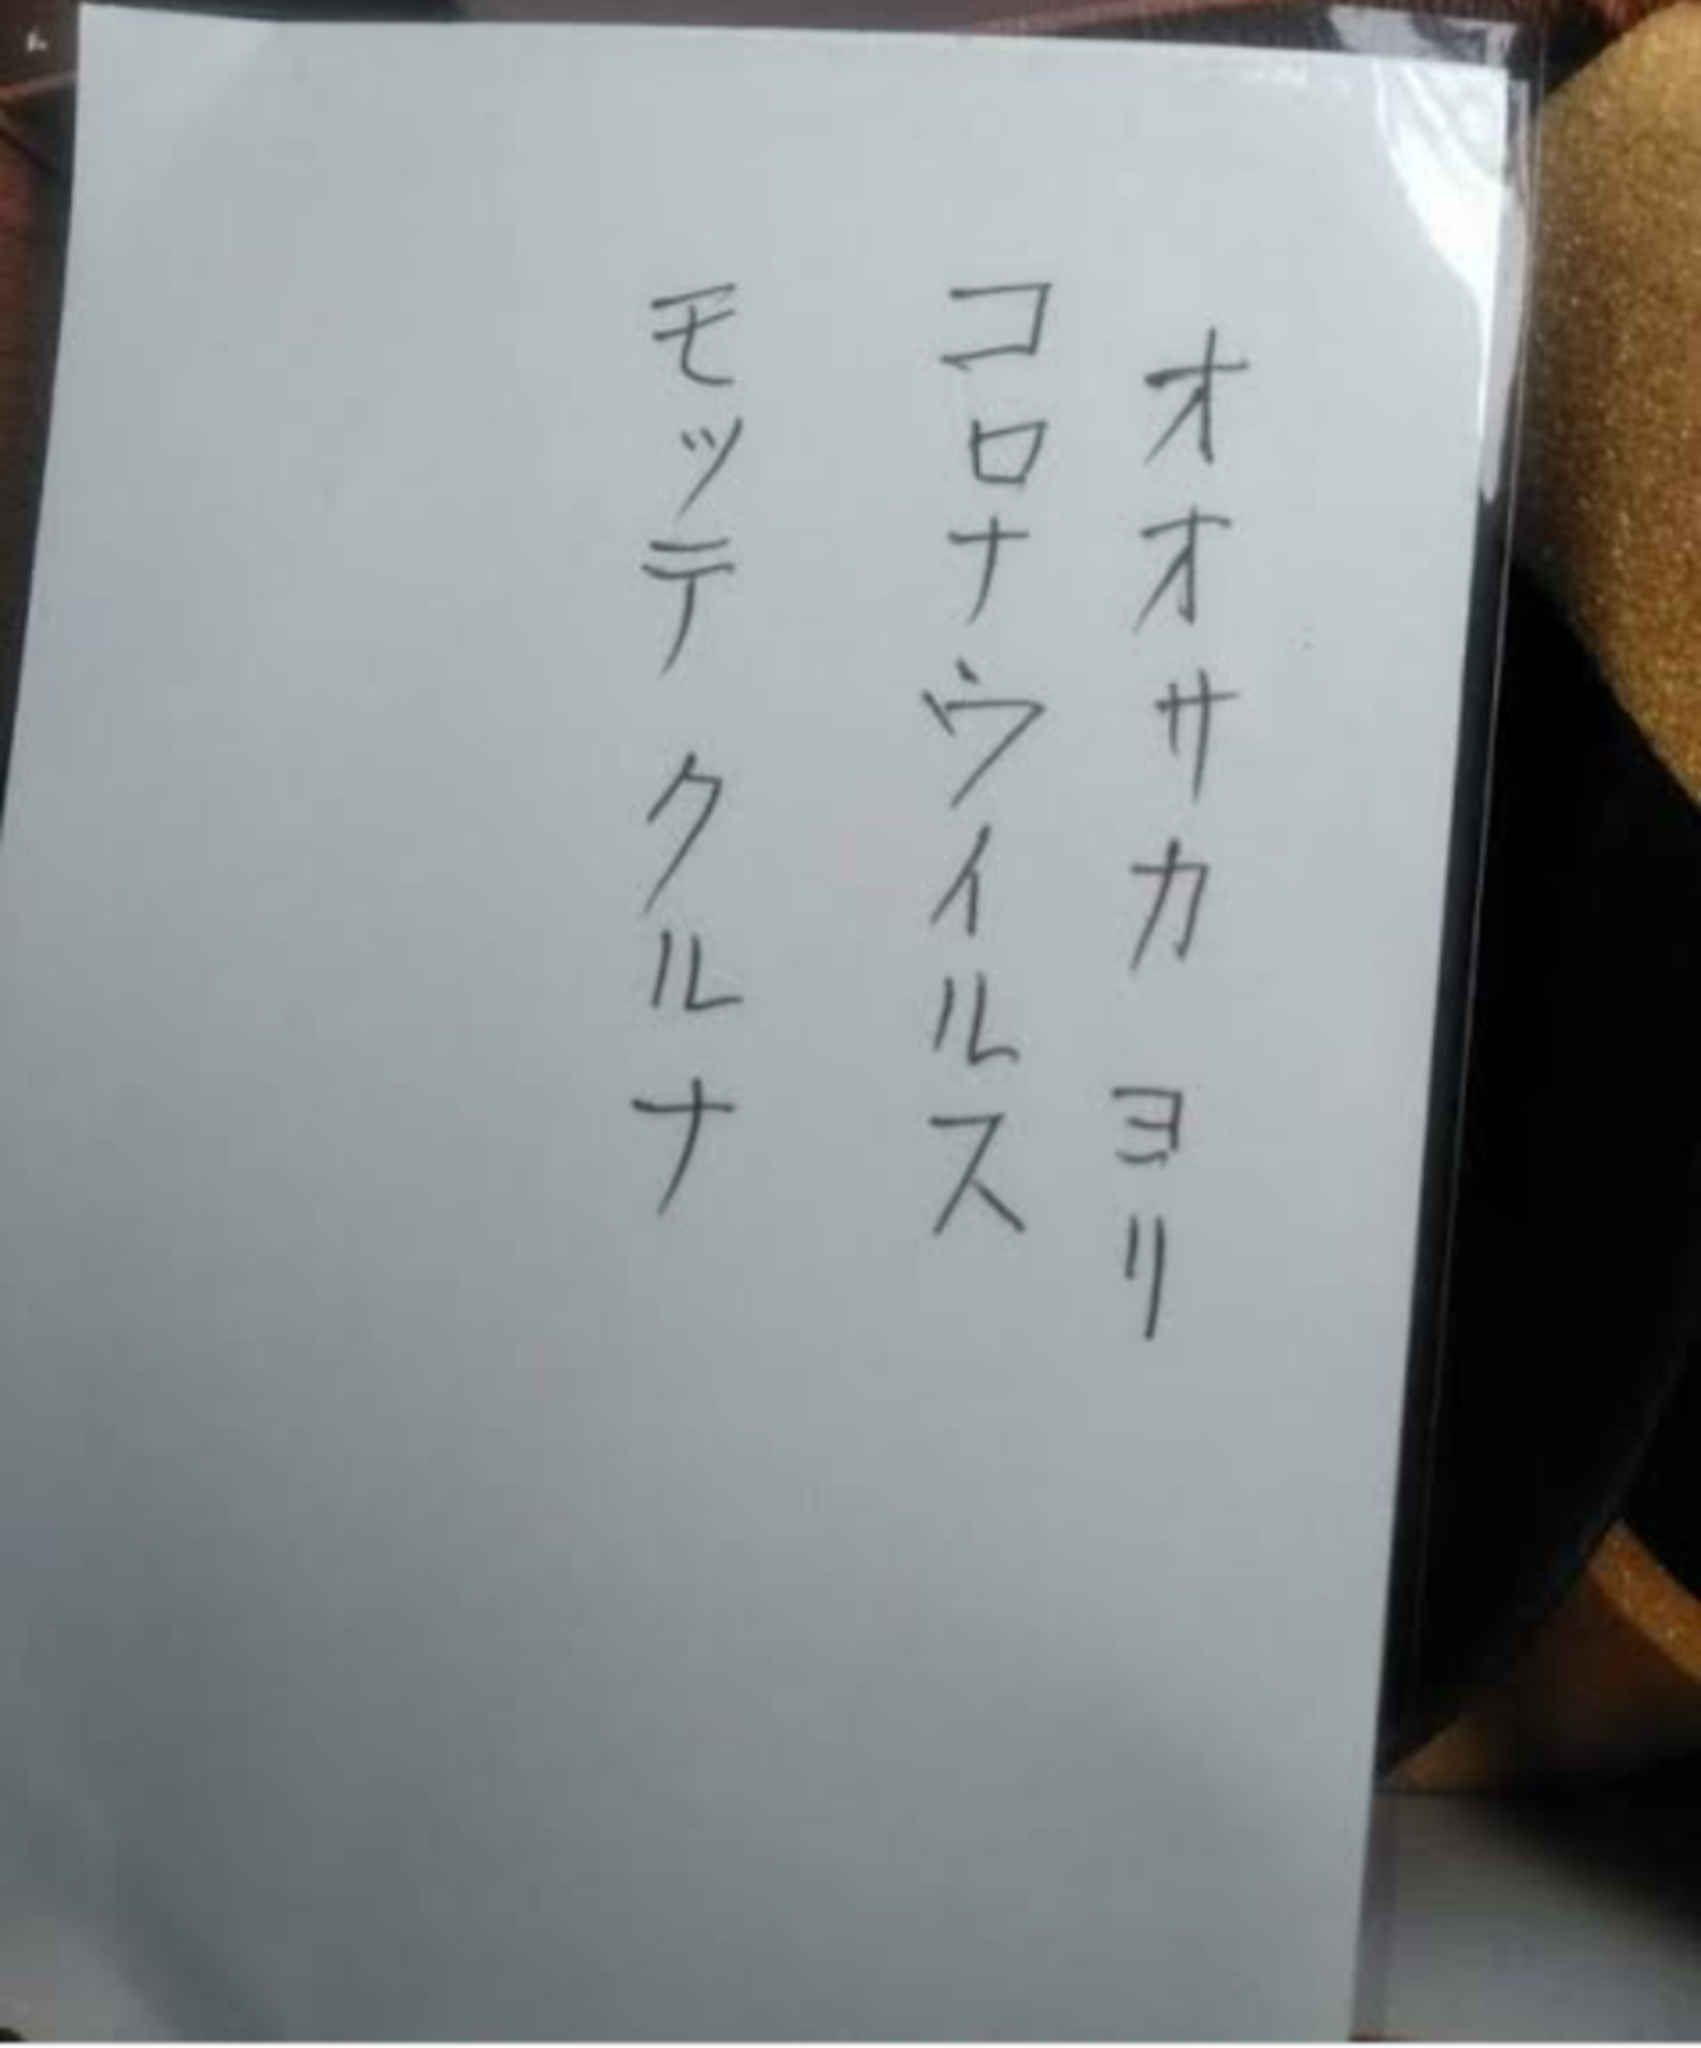 オオサカ ヨリ
コロナウイルス
モッテ クルナ